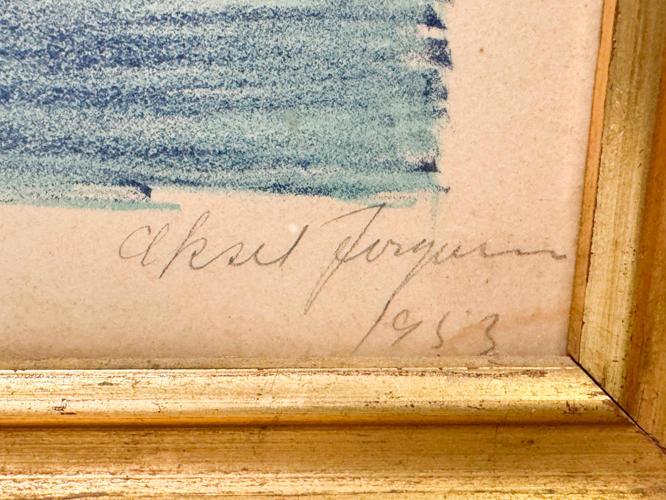 Aksel Jørgensen
1953